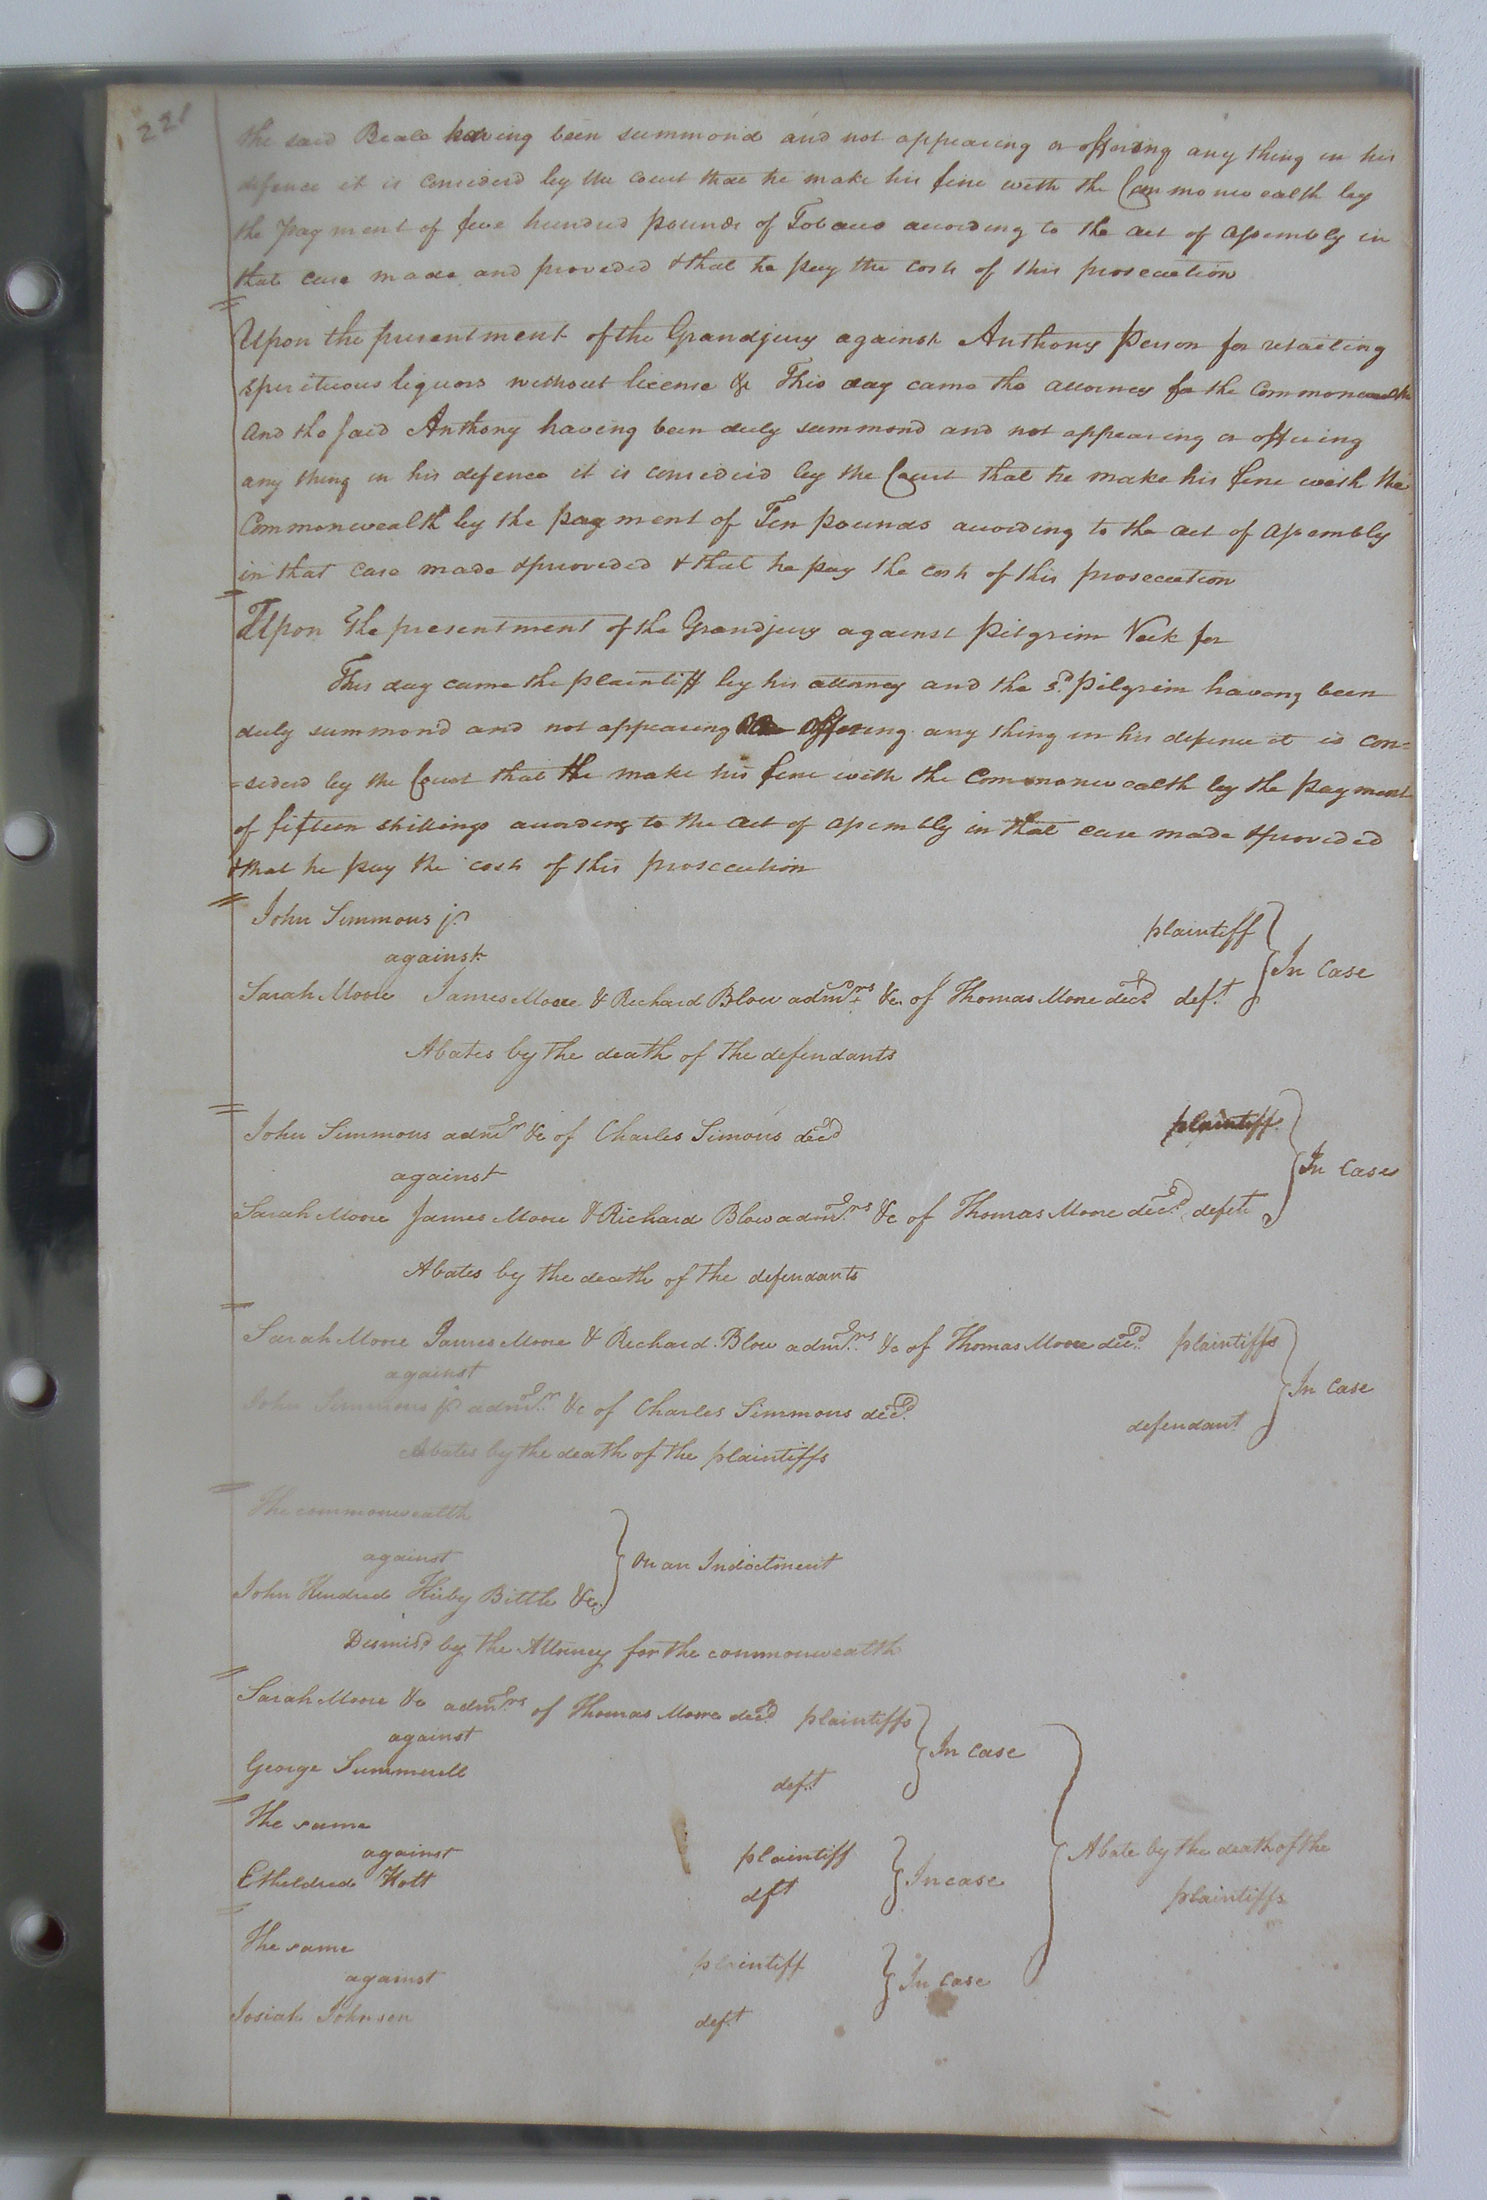 221
the said Beale having been summond and not appearing or offering any thing in his
defence it is considerd by the court that he make his fine with the Commonwealth by
the payment of five hundred pounds of Tobacco according to the act of assembly in
that case made and provided & that he pay the costs of this prosecution
Upon the presentment of the Grandjury against Anthony Person for retailing
spirituous liquors without license &c This day came the attorney for the Commonwealth
And the said Anthony having been duly summond and not appearing or offering
any thing in his defence it is considerd by the Court that he make his fine with the
Commonwealth by the payment of Ten pounds according to the act of assembly
in that case made & provided & that he pay the costs of this prosecution
Upon The presentment of the Grandjury against Pilgrim Vick for
This day came the plaintiff by his attorney and the sd. Pilgrim having been
duly summond and not appearing or offering any thing in his defence it is con=
=siderd by the Court that he make his fine with the Commonwealth by the payment
of fifteen shillings according to the act of assembly in that case made & provided
& that he pay the costs of this prosecution
John Simmons jr. plaintiff
against In Case
Sarah Moore James Moore & Richard Blow admrs. &c. of Thomas More decd. deft.
Abates by the death of the defendants
John Simmons admr &c of Charles Simons decd plaintiff
against In Case
Sarah Moore James Moore & Richard Blow admrs. &c of Thomas Moore decd. defts
Abates by the death of the defendants
Sarah Moore James Moore & Richard Blow admrs. &c of Thomas Moore decd. plaintiffs
against In Case
John Simmons jr admr. &c of Charles Simmons decd. defendant
Abates by the death of the plaintiffs
The commonwealth
against On an Indictment
John Kindred Kirby Bittle &c.
Dismisd by the Attorney for the commonwealth
Sarah Moore &c admrs of Thomas Moore decd plaintiffs
against In case
George Summerell deft
The same plaintiff
against In case Abate by the death of the
Etheldred Holt dft plaintiffs
The same plaintiff
against In Case
Josiah Johnson deft